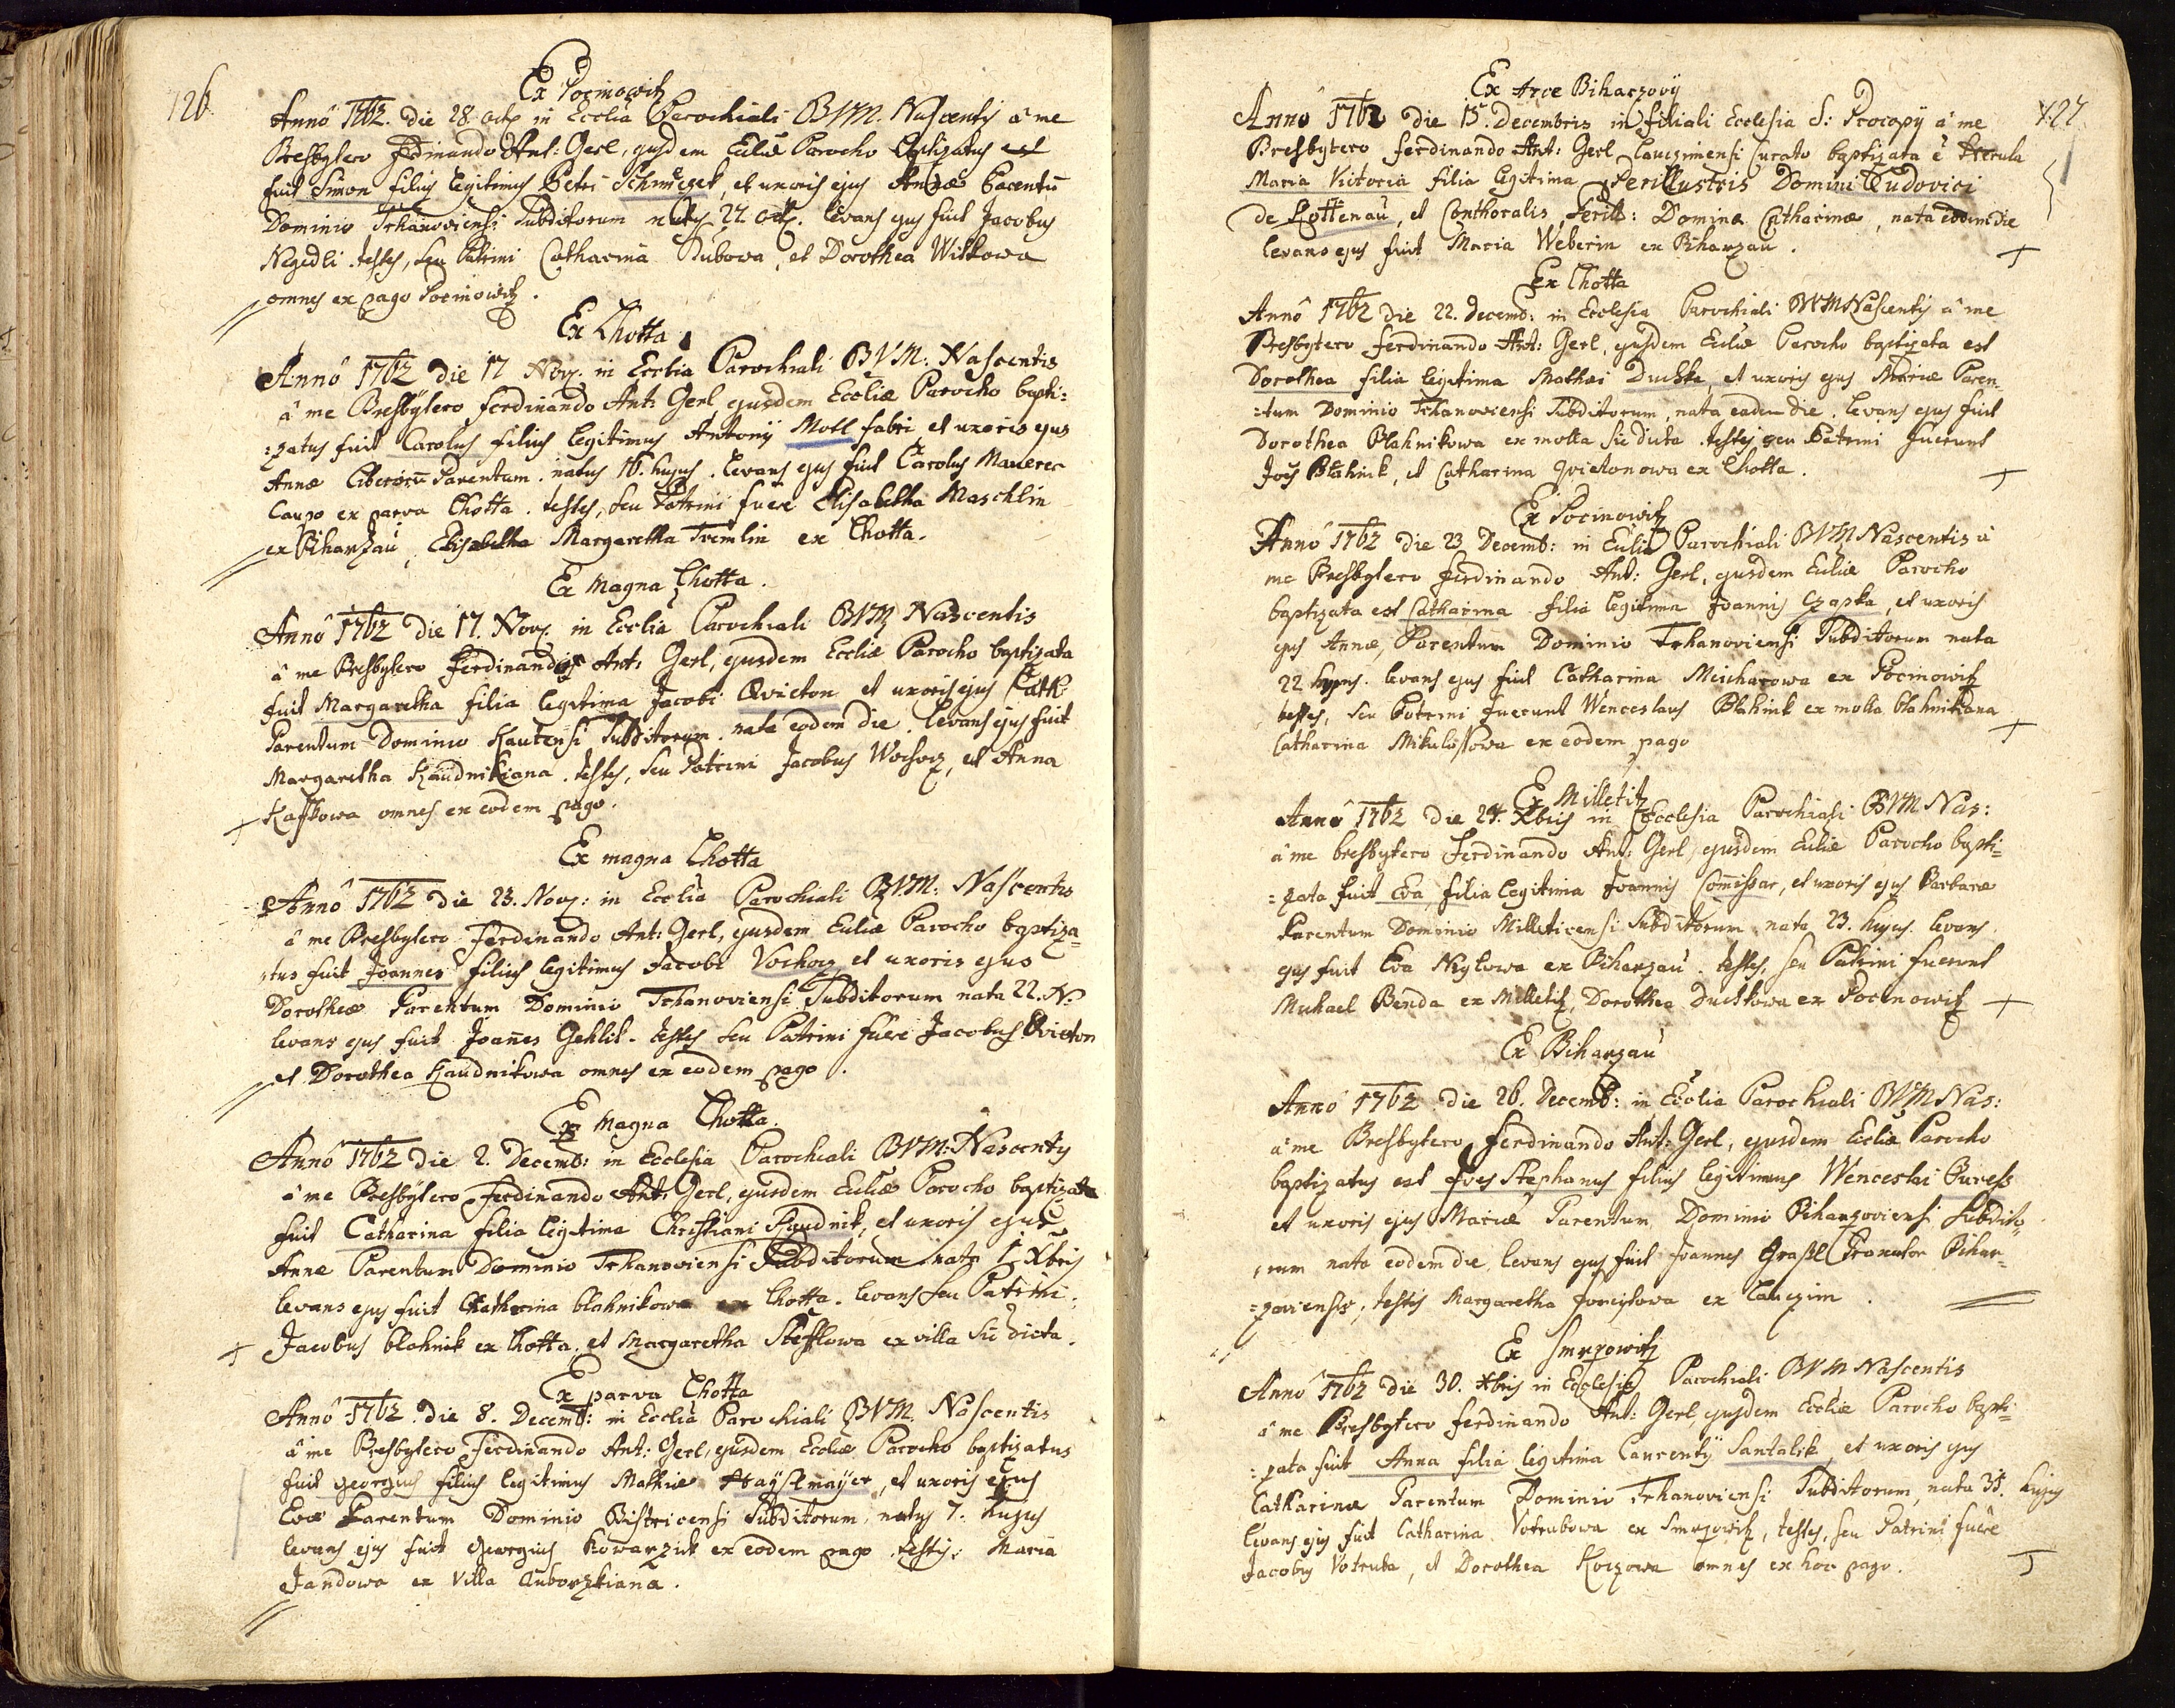 126.
Ex Pocinowitz
Annô 1762. die 28. octb in Ecclia Parochiali B.V.M. Nascentis â me
Presbytero Ferdinando Ant: Gerl, ejusdem Eccliæ Parocho baptizatus est
fuit Simon filius legitimus Petri Schmuczek, et uxoris ejus Annæ Parentū
Dominio Trhanoviensi Subditorum natus 27 octb. levans ejus fuit Jacobus
Negedli. testes, seu Patrini Catharina Dubowa, et Dorothea Witkowa
omnes ex pago Pocinowitz.
Ex Lhotta
Annô 1762 die 17 Nov. in Ecclia Parochiali B.V.M. Nascentis
â me Presbytero Ferdinando Ant: Gerl, ejusdem Eccliæ Parocho bapti:
:zatus fuit Carolus filius legitimus Antonij Moll fabri et uxoris ejus
Annæ Liberorū Parentum. natus 16. hujus. levans ejus fuit Carolus Maurer
Caupo ex parva Lhotta. testes, seu Patrini fuere Elisabetha Maschlin
ex Biharzau, Elisabetha Margaretha Tremlin ex Lhotta.
Ex Magna Lhotta.
Annô 1762 die 17. Nov. in Ecclia Parochiali B.V.M. Nascentis
â me Presbytero Ferdinando Ant: Gerl, ejusdem Eccliæ Parocho baptizata
fuit Margaretha filia legitima Jacobi Qvieton et uxoris ejus Cath:
Parentum Dominio Kautensi Subditorum. nata eodem die. levans ejus fuit
Margaretha Kaudnikiana. testes, seu Patrini Jacobus Wochoz, et Anna
Kasskowa omnes ex eodem pago.
Ex magna Lhotta
Annô 1762 die 23. Nov: in Ecclia Parochiali B.V.M. Nascentis
â me Presbytero Ferdinando Ant: Gerl, ejusdem Eccliæ Parocho baptiza=
:tus fuit Joannes filius legitimus Jacobi Vochoz et uxoris ejus
Dorotheæ Parentum Dominio Trhanoviensi Subditorum nata 22. N.
levans ejus fuit Joañes Gehlik. testes seu Patrini fuere Jacobus Qvieton
et Dorothea Kaudnikowa omnes ex eodem pago.
Ex Magna Lhotta.
Annô 1762 die 2. Decemb: in Ecclesia Parochiali B.V.M. Nascentis
â me Presbytero Ferdinando Ant: Gerl, ejusdem Eccliæ Parocho baptizata
fuit Catharina filia legitima Christiani Kaudnik, et uxoris ejus
Annæ Parentum Dominio Trhanoviensi Subditorum nata 1. Xbris
levans ejus fuit Catharina blahnikowa ex Lhotta. levans seu Patrini
Jacobus blahnik ex Lhotta, et Margaretha Steffkowa ex villa sic dicta.
Ex parva Lhotta
Annô 1762. die 8. Decemb: in Ecclia Parochiali B.V.M. Nascentis
â me Presbytero Ferdinando Ant: Gerl, ejusdem Eccliæ Parocho baptizatus
fuit Georgius filius legitimus Mathiæ Hayslmayer, et uxoris ejus
Evæ Parentum Dominio Bistricensi Subditorum, natus 7. hujus
levans ejus fuit Georgius Kowarzik ex eodem pago. testis: Maria
Jandowa ex Villa Auborzkiana.
127
Ex Arce Biharzovij
Annô 1762 die 13. Decembris in filiali Ecclesia S: Procopij â me
Presbytero Ferdinando Ant: Gerl Lauczimensi Curato baptizata ê
Maria Victoria filia legitima Perillustris Domini Ludovici
de Lottenau, et Conthoralis Perill: Dominæ Catharinæ, nata eodem die
levans ejus fuit Maria Weberin ex Biharzau.
Ex Lhotta
Annô 1762 die 22. Decemb: in Ecclesia Parochiali B.V.M. Nascentis â me
Presbytero Ferdinando Ant: Gerl, ejusdem Eccliæ Parocho baptizata est
Dorothea filia legitima Mathæi Duchke, et uxoris ejus Mariæ Paren=
=tum Dominio Trhanoviensi Subditorum, nata eadem die. levans ejus fuit
Dorothea Blahnikowa ex molta sic dicta. testes seu Patrini fuerunt
Joēs Blahnik, et Catharina Qvietonowa ex Lhotta.
Ex Pocinowitz
Annô 1762 die 23 Decemb: in Ecclia Parochiali B.V.M. Nascentis â
me Presbytero Ferdinando Ant: Gerl, ejusdem Eccliæ Parocho
baptizata est Catharina filia legitima Joannis Czapka, et uxoris
ejus Annæ, Parentum Dominio Trhanoviensi Subditorum nata
22 hujus. levans ejus fuit Catharina Meicharowa ex Pocinowitz
testes, seu Patrini fuerunt Wenceslaus Blahnik ex molta blahnikiana
Catharina Mikulissowa ex eodem pago
Ex Milletitz
Annô 1762 die 24. Xbris in Ecclesia Parochiali B.V.M. Nas:
â me presbytero Ferdinando Ant: Gerl, ejusdem Eccliæ Parocho bapti=
=zata fuit Eva, filia legitima Joannis Comissar, et uxoris ejus Barbaræ
Parentum Dominio Milleticensi Subditorum, nata 23. hujus. levans
ejus fuit Eva Neylowa ex Biharzau. testes, seu Patrini fuerunt
Michael Benda ex Milletitz, Dorothea Duchkowa ex Pocinowitz
Ex Biharzau
Annô 1762. die 26. Decemb: in Ecclia Parochiali B.V.M. Nas:
â me Presbytero Ferdinando Ant: Gerl, ejusdem Eccliæ Parocho
baptizatus est Stephanus filius legitimus Wenceslai Buress
et uxoris ejus Mariæ Parentum Dominio Biharzoviensi Subdito=
:rum nata eodem die, levans ejus fuit Joannes Grassl Granator Bihar=
=zoviensis, testis Margaretha ex Lauczim.
Ex Smrzowitz
Annô 1762 die 30. Xbris in Ecclesia Parochiali B.V.M. Nascentis
â me Presbytero Ferdinando Ant: Gerl, ejusdem Eccliæ Parocho bapti=
:zata fuit Anna filia legitima Laurentij Santalik et uxoris ejus
Catharinæ Parentum Dominio Trhanoviensi Subditorum, nata 30. hujus
levans ejus fuit Catharina Votrubowa ex Smrzowitz, testes, seu Patrini fuere
Jacobus Votruba, et Dorothea Koczowa omnes ex hoc pago.